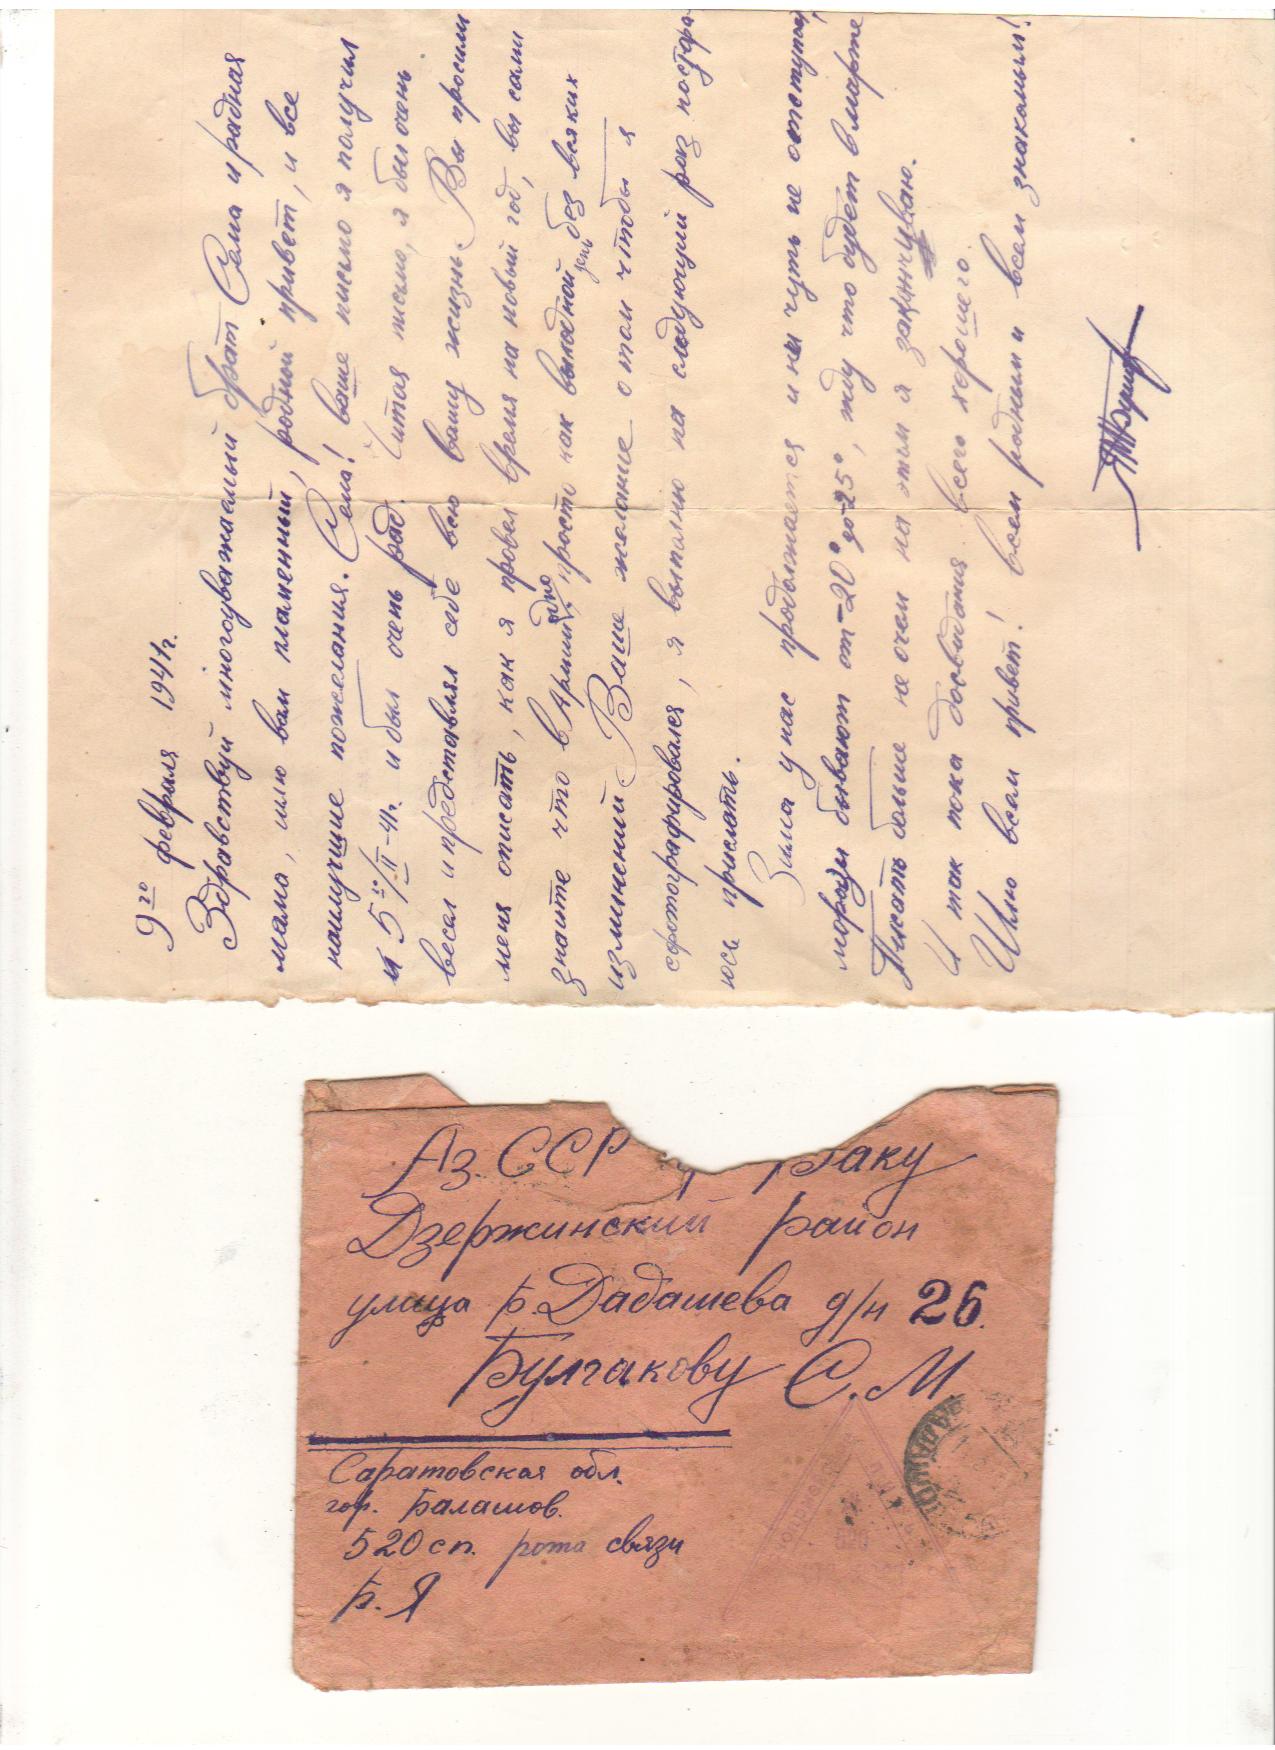 9го февраля 1941г.
Здравствуй многоуважаемый брат Сема и родная
мама, шлю вам пламенный, родной привет, и все
наилучшие пожелания. Сема! ваше письмо я получил
и 5го/II-41г. и был очень рад. Читая письмо, я был очень
весел и представлял себе всю вашу жизнь. Вы просили
меня описать, как я провел время на новый год, вы сами
знаите что в Армии, просто как выходной день без всяких
изминений. Ваше желание о том чтобы я
сфотографировался, я выполню на следующий раз постара-
юсь прислать.
Зима у нас продолжается и ни чуть не отступает,
морозы бывают от -20° до -25°, жду что будет в марте
Писать больше не очем на этом я заканчиваю.
И так пока досвидания всего хорошего.
Шлю всем привет! всем родным и всем знакомым!
Аз. ССР Баку
Дзержинский район
улица Б. Дадашева д/н 26.
Булгакову С. М
Саратовская обл.
гор. Балашов.
520 сп. рота связи
Б. Я